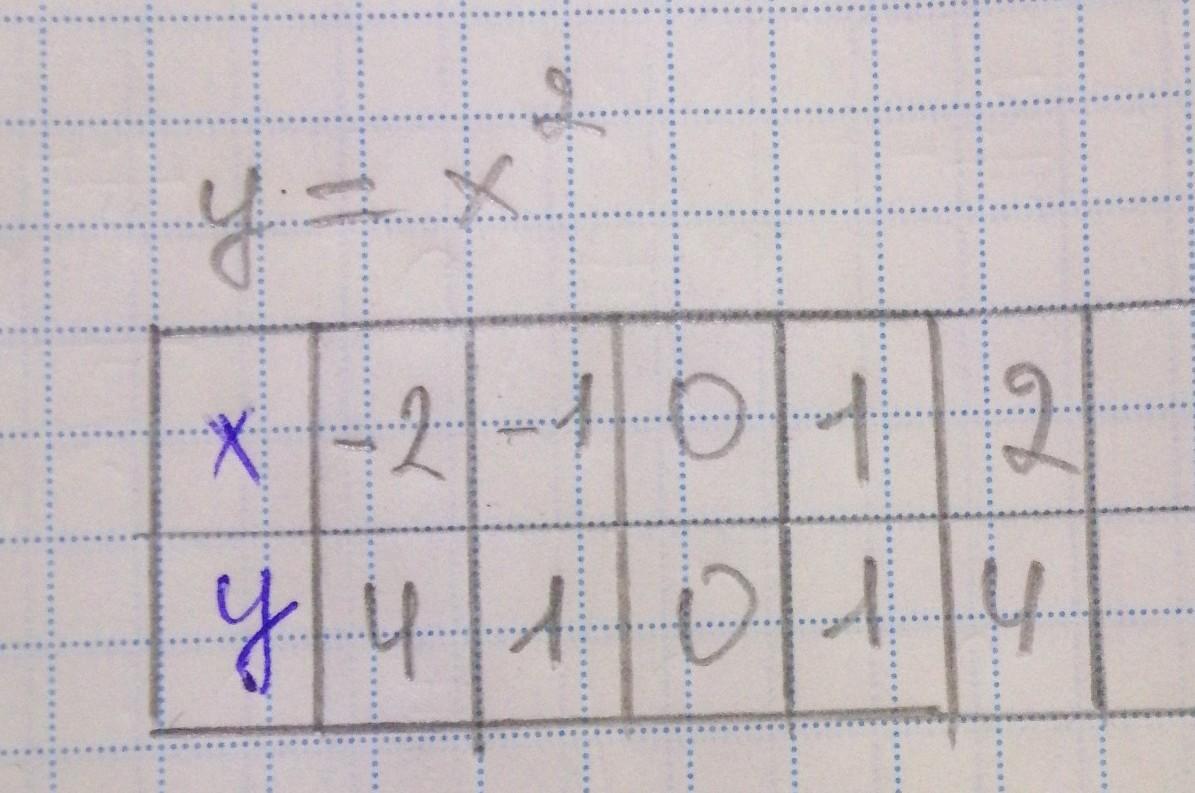 y = x²
x -2 -1 0 1 2
y 4 1 0 1 4